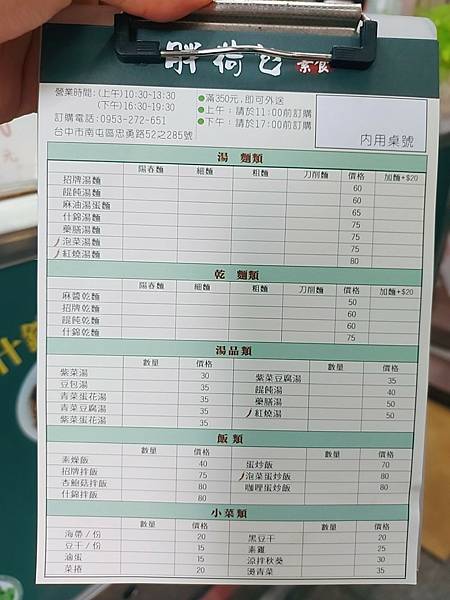 胖荷包 素食
營業時間:(上午)10:30-13:30
(下午)16:30-19:30
訂購電話:0953-272-651
台中市南屯區忠勇路52之285號
●滿350元,即可外送
●上午:請於11:00前訂購
●下午:請於17:00前訂購
內用桌號
湯 麵類
陽春麵 細麵 粗麵 刀削麵 價格 加麵+$20
招牌湯麵 60
餛飩湯麵 60
麻油湯蛋麵 65
什錦湯麵 75
藥膳湯麵 75
泡菜湯麵 75
紅燒湯麵 80
乾 麵類
陽春麵 細麵 粗麵 刀削麵 價格 加麵+$20
麻醬乾麵 50
招牌乾麵 60
餛飩乾麵 60
什錦乾麵 75
湯品類
數量 價格 數量 價格
紫菜湯 30 紫菜豆腐湯 35
豆包湯 35 餛飩湯 40
青菜蛋花湯 35 藥膳湯 50
青菜豆腐湯 35 紅燒湯 50
紫菜蛋花湯 35
飯類
數量 價格 數量 價格
素燥飯 40 蛋炒飯 70
招牌拌飯 75 泡菜蛋炒飯 80
杏鮑菇拌飯 80 咖哩蛋炒飯 80
什錦拌飯 80
小菜類
數量 價格 數量 價格
海帶/份 20 黑豆干 20
豆干/份 15 素雞 25
滷蛋 15 涼拌秋葵 30
菜捲 20 燙青菜 35
什錦
元